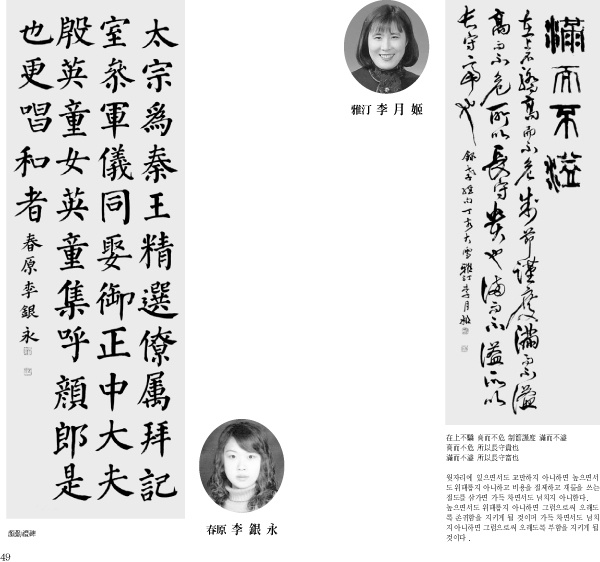 太宗爲秦王精選僚属拜記
室叅軍儀同娶御正中大夫
殷英童女英童集呼顔郎是
也更唱和者 春原李銀永
顔勤禮碑
春原 李 銀 永
雅汀 李 月 姬
滿而不溢
在上不驕高而不危制節謹度滿而不溢
高而不危所以長守貴也滿而不溢所以
長守富也 錄孝經句丁亥大雪雅汀李月姬
在上不驕 高而不危 制節謹度 滿而不溢
高而不危 所以長守貴也
滿而不溢 所以長守富也
윗자리에 있으면서도 교만하지 아니하면 높으면서
도 위태롭지 아니하고 비용을 절제하고 재물을 쓰는
절도를 삼가면 가득 차면서도 넘치지 아니한다.
높으면서도 위태롭지 아니하면 그럼으로써 오래도
록 존귀함을 지키게 될 것이며 가득 차면서도 넘치
지 아니하면 그럼으로써 오래도록 부함을 지키게 될
것이다 .
49